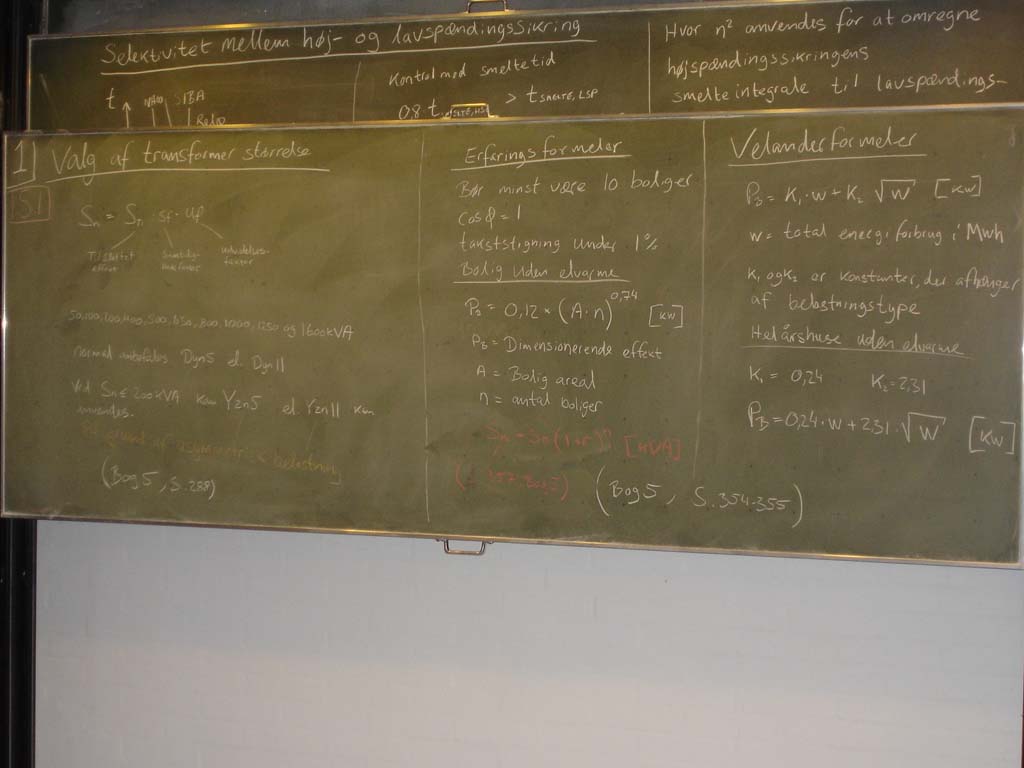 Selektivitet mellem høj- og lavspændingssikring
t
IBA
Kontrol med smeltetid
0,8 t > t SMELTE, LSP
Hvor n² anvendes for at omregne
højspændingssikringens
smelteintegrale til lavspændings-
1] Valg af transformer størrelse
5.1
Sn = Sn · sf · uf
50, 100, 200, 400, 500, 630, 800, 1000, 1250 og 1600 kVA
normal anbefales Dyn5 el. Dyn11
Ved Sn ≤ 200 kVA kan Yzn5 el Yzn11 kan
anvendes.
På grund af asymmetrisk belastning
(Bog 5, S. 288)
Erfaringsformeler
Bør minst være 10 boliger
cos φ = 1
takststigning under 1%
Bolig uden elvarme
PB = 0,12 × (A · n)^0,74 [kW]
PB = Dimensionerende effekt
A = Bolig areal
n = antal boliger
[kVA]
(Bog 5, S. 354-355)
Velanderformeler
PB = K1 · w + K2 √w [kW]
w = total energiforbrug i Mwh
K1 og K2 er konstanter, der afhænger
af belastningstype
Helårshuse uden elvarme
K1 = 0,24 K2 = 2,31
PB = 0,24 · w + 2,31 · √w [kW]